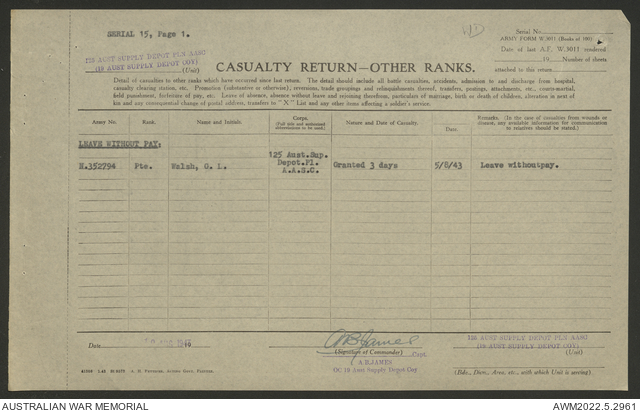 SERIAL 15, Page 1.
WD
Serial No.
ARMY FORM W.3011 (Books of 100)
Date of last A.F. W.3011 rendered
125 AUST SUPPLY DEPOT PLN AASC
(19 AUST SUPPLY DEPOT COY)
(Unit)
19 Number of sheets
attached to this return
CASUALTY RETURN—OTHER RANKS.
Detail of casualties to other ranks which have occurred since last return. The detail should include all battle casualties, accidents, admission to and discharge from hospital,
casualty clearing station, etc. Promotion (substantive or otherwise), reversions, trade groupings and relinquishments thereof, transfers, postings, attachments, etc., courts-martial,
field punishment, forfeiture of pay, etc. Leave of absence, absence without leave and rejoining therefrom, particulars of marriage, birth or death of children, alteration in next of
kin and any consequential change of postal address, transfers to "X" List and any other items affecting a soldier's service.
Army No. Rank. Name and Initials. Corps. (Full title and authorised abbreviations to be used.) Nature and Date of Casualty. Date. Remarks. (In the case of casualties from wounds or disease, any available information for communication to relatives should be stated.)
LEAVE WITHOUT PAY:
N.352794 Pte. Walsh, G. L. 125 Aust.Sup. Depot.Pl. A.A.S.C. Granted 3 days 5/8/43 Leave withoutpay.
Date
ABJames
(Signature of Commander) Capt.
A.B.JAMES
OC 19 Aust Supply Depot Coy
125 AUST SUPPLY DEPOT PLN AASC
(19 AUST SUPPLY DEPOT COY)
(Unit)
(Bde., Divn., Area, etc., with which Unit is serving).
AUSTRALIAN WAR MEMORIAL
AWM2022.5.2961